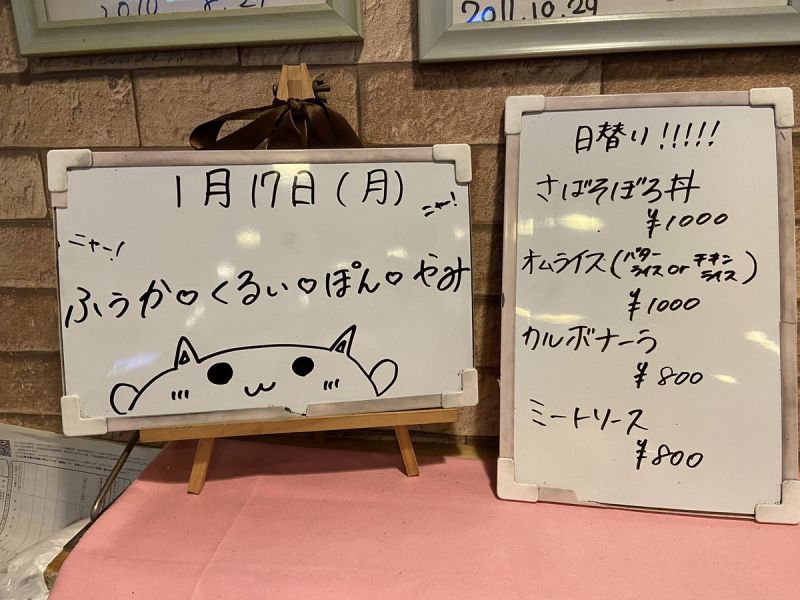 2010 8.29
2011.10.29
1月17日(月)
ニャー!
ニャー!
ふうか♡くるぃ♡ぽん♡やみ
日替り!!!!!
さばそぼろ丼
¥1000
オムライス(バターライスorチキンライス)
¥1000
カルボナーラ
¥800
ミートソース
¥800